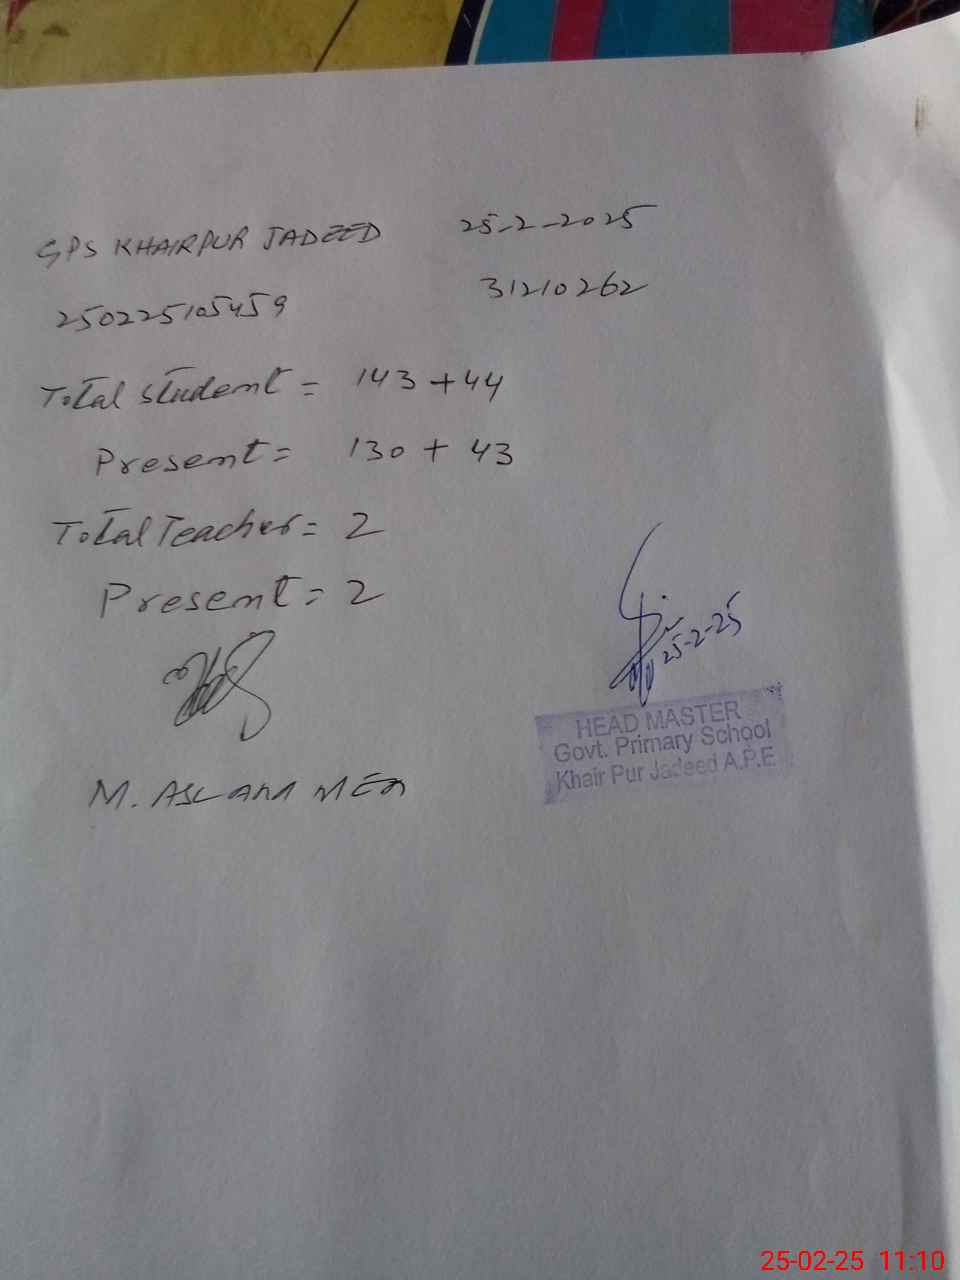 GPS KHAIRPUR JADEED 25-2-2025
250225105459 31210262
Total student = 143 + 44
Present = 130 + 43
Total Teacher = 2
Present = 2
25-2-25
HEAD MASTER
Govt. Primary School
Khair Pur Jadeed A.P.E
M. ASLAM MEA
25-02-25 11:10